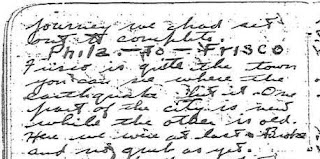 journey we had set
out to complete.
Phila.-To-Frisco
Frisco is quite the town
you can see where the
earthquake hit it. One
part of the city is new
while the other is old.
Here we were at last
and not quit as yet.